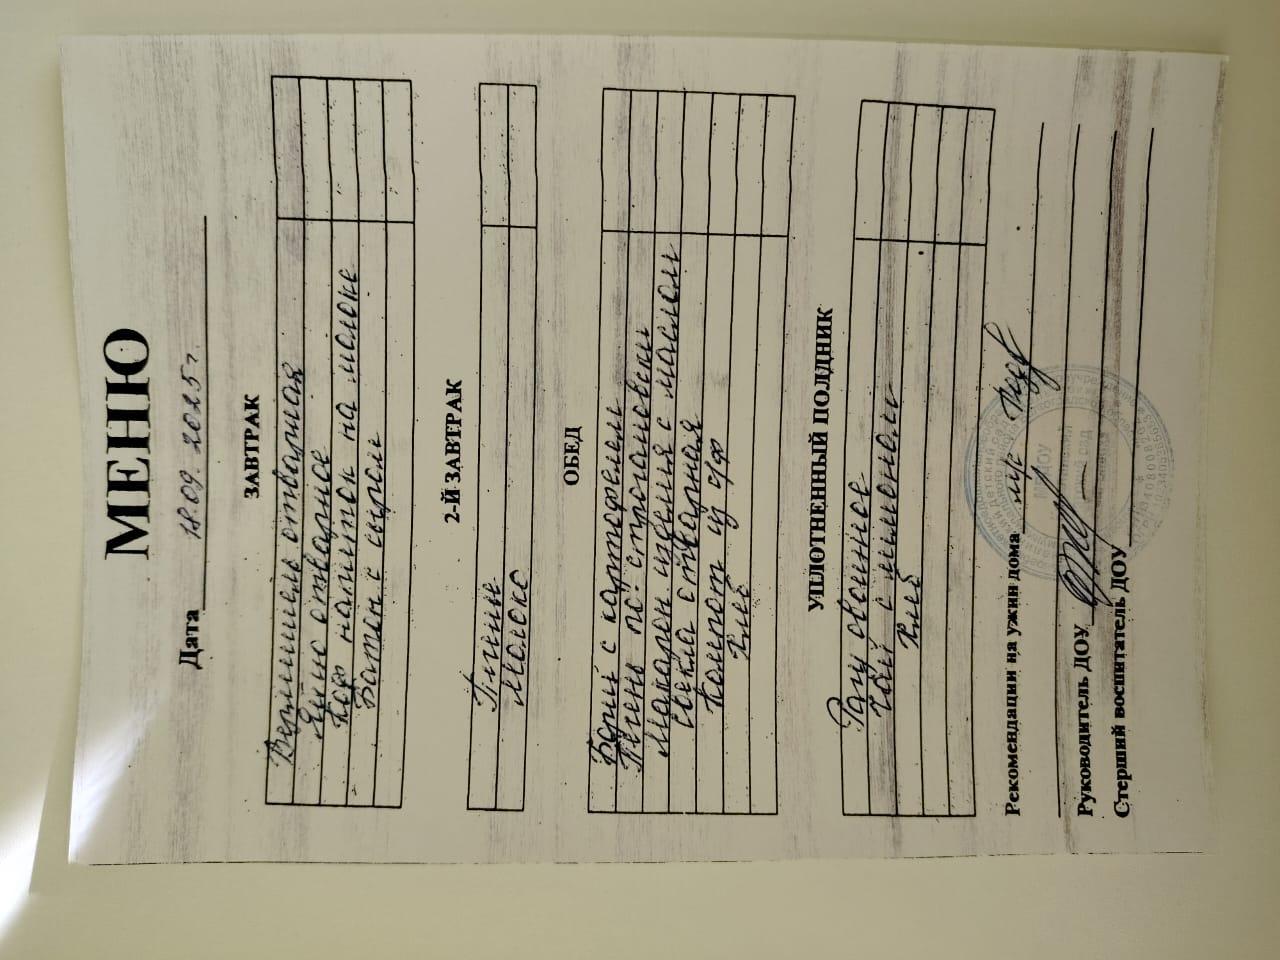 МЕНЮ
Дата 18.09.2025г.
ЗАВТРАК
Вермишель отварная
Яйцо отварное
Коф напиток на молоке
Батон с сыром
2-Й ЗАВТРАК
Печенье
Молоко
ОБЕД
Борщ с картофелем
Печень по-строгановски
Макарон изделия с маслом
Свёкла отварная
Компот из с/ф
Хлеб
УПЛОТНЕННЫЙ ПОЛДНИК
Рагу овощное
Чай с лимоном
Хлеб
Рекомендации на ужин дома
Руководитель ДОУ
Стерший воспитатель ДОУ